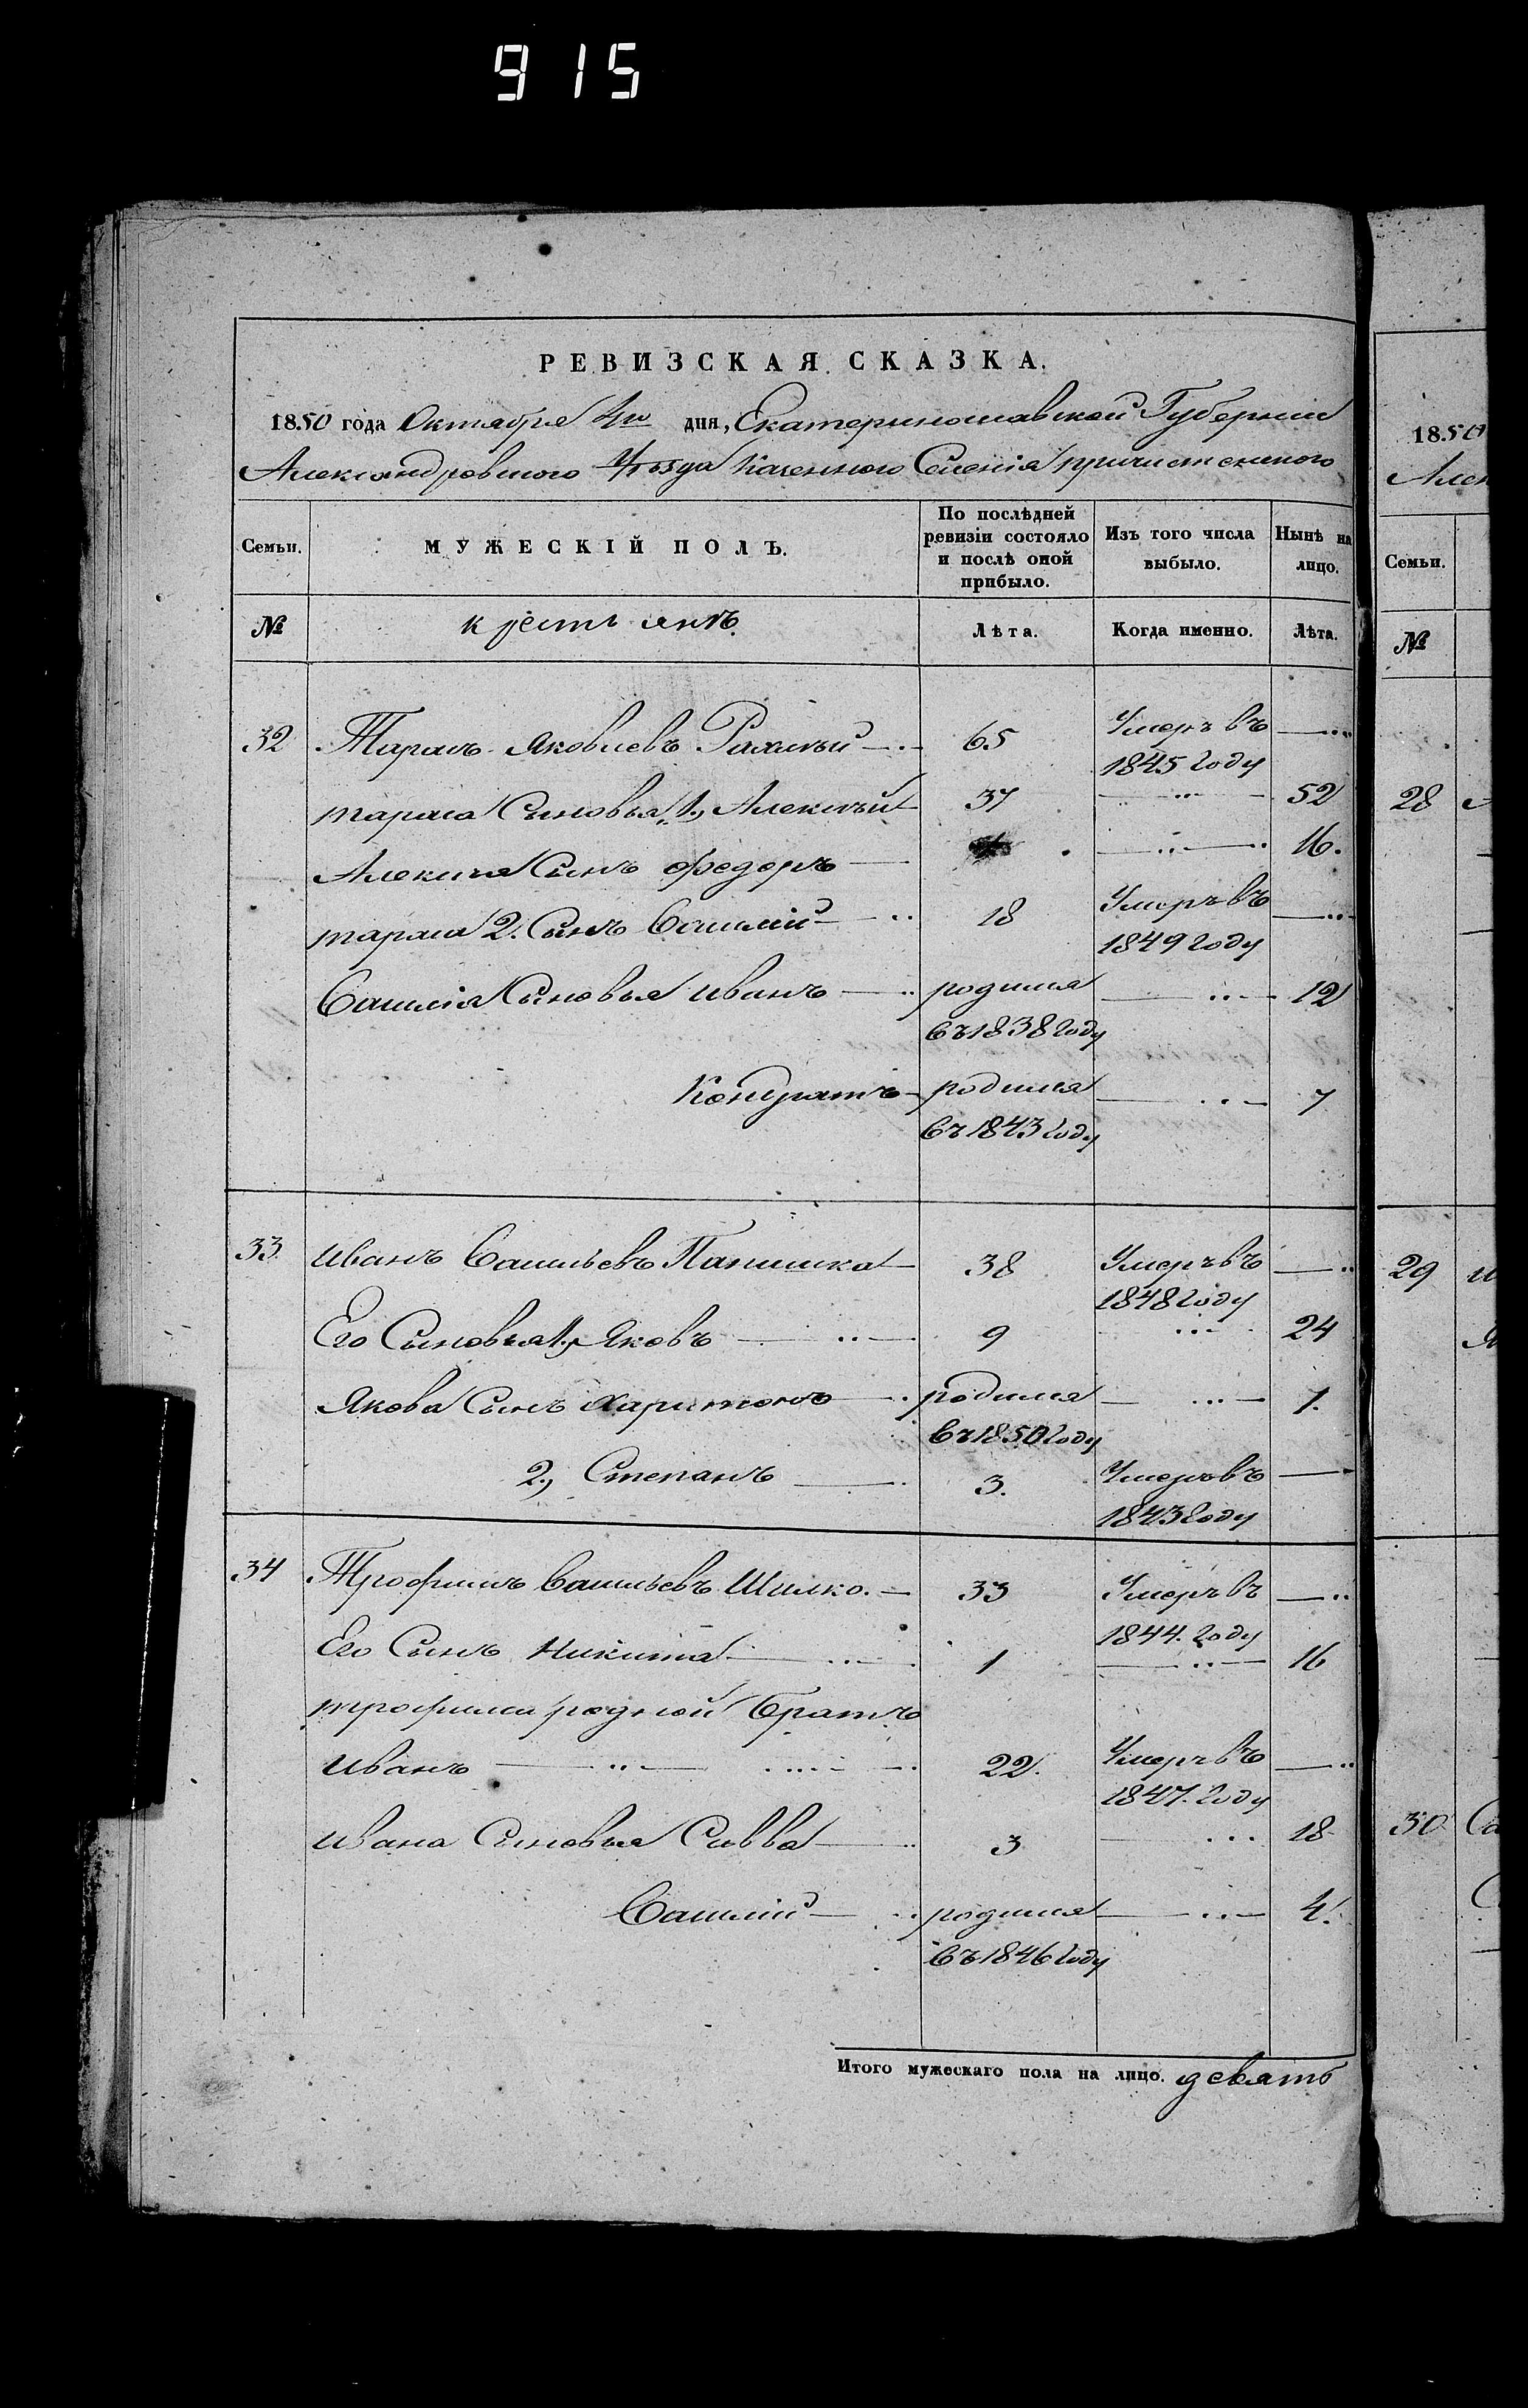 915
РЕВИЗСКАЯ СКАЗКА.
1850 года Октября 4го дня, Екатеринославской Губернии
Александровского Уѣзда Казенного Селенія причистенского
Семьи. МУЖЕСКІЙ ПОЛЪ. По послѣдней ревизіи состояло и послѣ оной прибыло. Изъ того числа выбыло. Нынѣ на лицо.
№ крестьянъ. Лѣта. Когда именно. Лѣта.
32 Тарасъ Яковлевъ 65 Умеръ въ 1845 году
тараса Сыновья 1, Алексѣй 37 52
Алексѣя Сынъ Федоръ 16.
тараса 2. Сынъ Василій 18 Умеръ въ 1849 году
Василія Сыновья иванъ родился въ 1838 году 12
Кондратъ родился въ 1843 году 7
33 иванъ Васильевъ 38 Умеръ въ 1848 году
Его Сыновья 1, Яковъ 9 24
Якова Сынъ харитонъ родился въ 1850 году 1.
2, Степанъ 3. Умеръ въ 1843 году
34 Трофимъ Васильевъ Шилко. 33 Умеръ въ 1844. году
Его Сынъ Никита 1 16
трофима родной братъ
иванъ 22. Умеръ въ 1847. году
ивана Сыновья Савва 3 18
Василій родился въ 1846 году 4.
Итого мужескаго пола на лицо. девять
1850
Семьи.
№
28
29
30